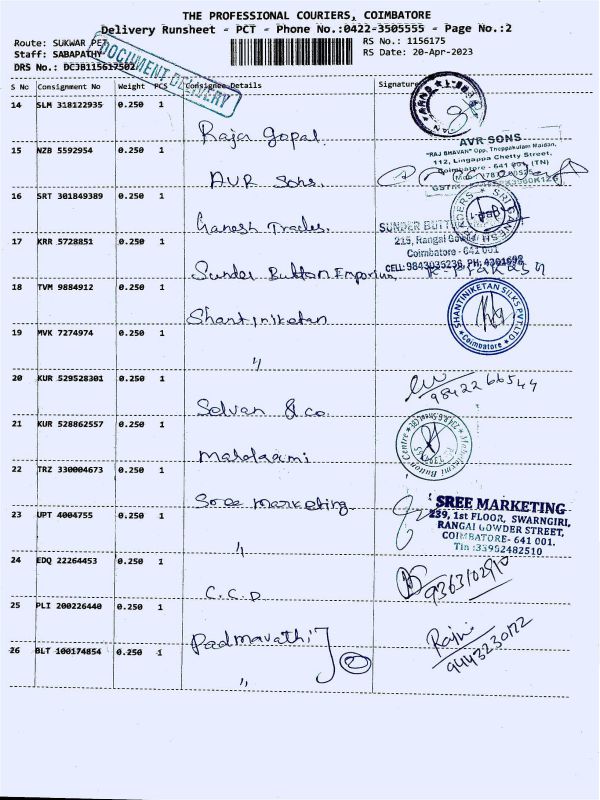 THE PROFESSIONAL COURIERS, COIMBATORE
Delivery Runsheet - PCT - Phone No.:0422-3505555 - Page No.:2
Route: SUKWAR PET
RS No.: 1156175
Staff: SABAPATHY
RS Date: 20-Apr-2023
DRS No.: DCJB115617502
DOCUMENT DELIVERY
S No Consignment No Weight PCS Consignee Details Signature
14 SLM 318122935 0.250 1
Raja Gopal
15 NZB 5592954 0.250 1
AVR Sons.
AVR SONS
"RAJ BHAVAN" Opp. Theppakulam Maidan,
112, Lingappa Chetty Street,
Coimbatore - 641 001 (TN)
16 SRT 301849389 0.250 1
Ganesh Traders.
SRI GANESH
17 KRR 5728851 0.250 1
Sunder Button Emporium
215, Rangai Gowder
Coimbatore - 641 001
CELL: 9843035236, PH: 4301698
18 TVM 9884912 0.250 1
Shantiniketan
SHANTINIKETAN SILKS PVT LTD
Coimbatore
19 MVK 7274974 0.250 1
"
20 KUR 529528301 0.250 1
Selvan & co.
9842266549
21 KUR 528862557 0.250 1
Mahalaxmi
Mahalaxmi Button Centre
22 TRZ 330004673 0.250 1
Sree marketing
SREE MARKETING
239, 1st FLOOR, SWARNGIRI,
RANGAI GOWDER STREET,
COIMBATORE- 641 001.
Tin :33952482510
23 UPT 4004755 0.250 1
"
24 EDQ 22264453 0.250 1
C.C.D
9363102910
25 PLI 200226440 0.250 1
Padmavathi
2
Raju
9443230172
26 BLT 100174854 0.250 1
"